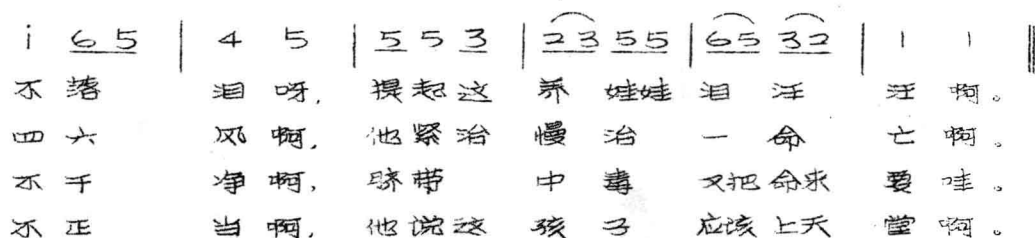 i 6 5 | 4 5 | 5 5 3 | 2 3 5 5 | 6 5 3 2 | 1 1 ‖
不 落 泪 呀, 提 起 这 养 娃娃 泪 汪 汪 啊。
四 六 风 啊, 他 紧 治 慢 治 一 命 亡 啊。
不 干 净 啊, 脐 带 中 毒 又把 命求 要 哇。
不 正 当 啊, 他 说 这 孩 子 应该 上天 堂 啊。